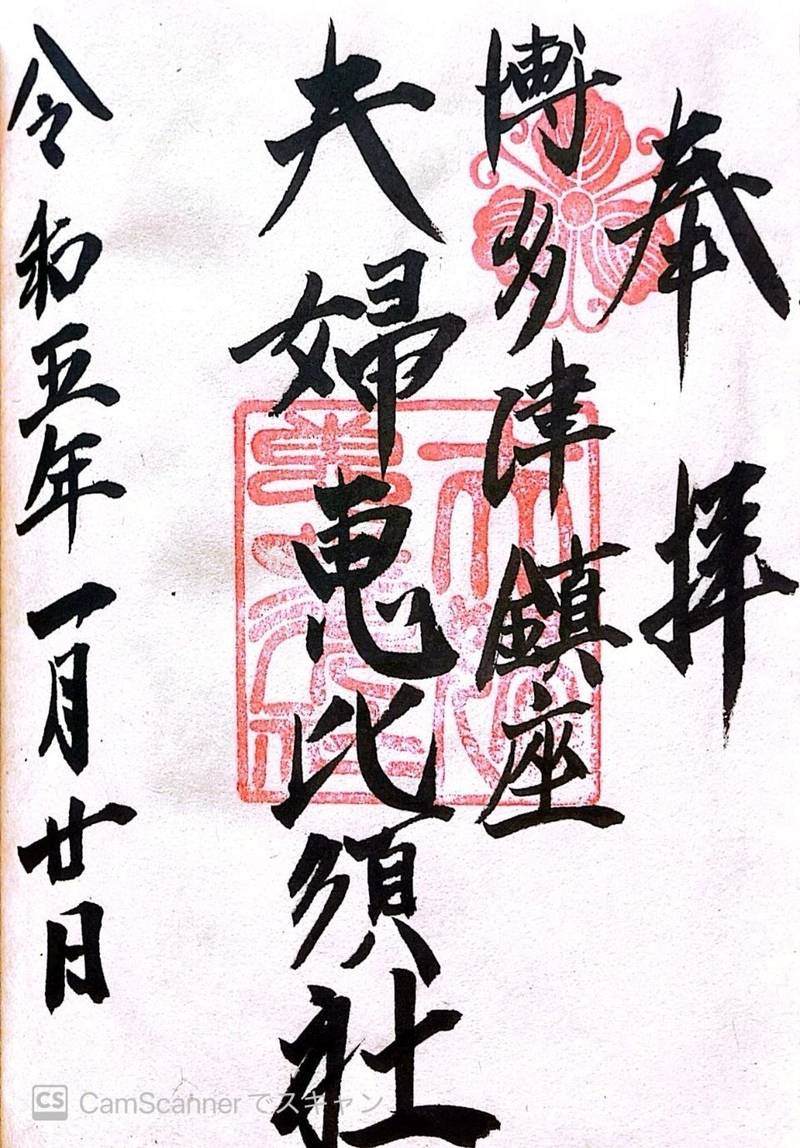 奉拝
博多津鎮座
夫婦恵比須社
令和五年一月廿日
CS CamScannerでスキャン